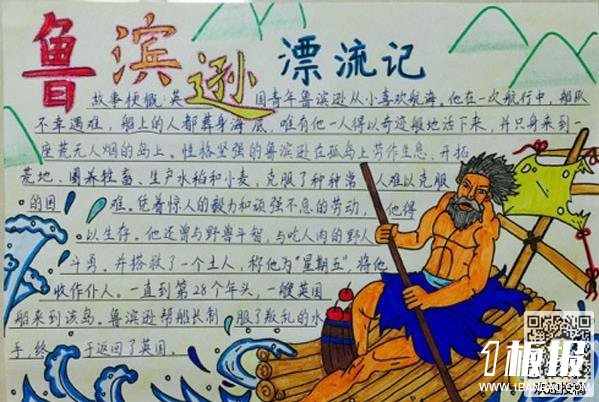 鲁滨逊漂流记
故事梗概 英国青年鲁滨逊从小喜欢航海。他在一次航行中，船队
不幸遇难，船上的人都葬身海底，唯有他一人得以奇迹般地活下来，并只身来到一
座荒无人烟的岛上。性格坚强的鲁滨逊在孤岛上劳作生息、开拓
荒地、圈养牲畜、生产水稻和小麦，克服了种种常人难以克服
的困难。凭着惊人的毅力和顽强不息的劳动，他得
以生存。他还曾与野兽斗智，与吃人肉的野人
斗勇。并搭救了一个土人，称他为“星期五”将他
收作仆人。一直到第28个年头，一艘英国
船来到该岛。鲁滨逊帮船长制服了叛乱的水
手，终于返回了英国。
1板报
WWW.1BANBAO.COM